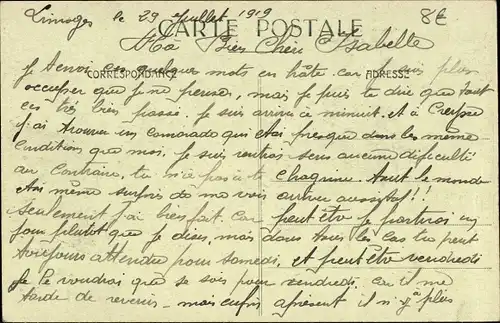 Limoges le 29 Juillet 1919 8€
CARTE POSTALE
Ma Bien Chère Isabelle
CORRESPONDANCE ADRESSE
Je tenvoi ces quelques mots en hâte car je suis plus
occuper que je ne pensé, mais je puis te dire que tout
ces très bien passé. Je suis arrivé a minuit. et à
j'ai trouver un camarade qui étai presque dans les même
conditions que moi. Je suis rentrés sens aucune dificulté
au Contraire, tu n'a pas à te chagriné. tout le monde
étai même surpris de me voir arriver aussytot!
seulement j'ai bien fait. Car peut être je partirai un
jour plutôt que je disez, mais dans tous les Cas tu peut
toujours attendre pour samedi, et peut être vendredi
Je le voudrai que se sois pour vendredi. Car il me
tarde de revenir - mais enfin apresent il n'y a plus